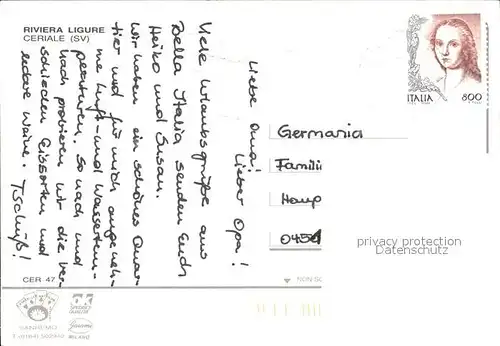 RIVIERA LIGURE
CERIALE (SV)
Liebe Oma!
Lieber Opa!
Viele Urlaubsgrüße aus
Bella Italia senden Euch
Heiko und Susan.
Wir haben ein schönes Quar-
tier und für mich angeneh-
me Luft- und Wassertem-
peraturen. So nach und
nach probieren wir die ver-
schieden Eissorten und
leckere Weine. Tschüß!
ITALIA 800
Germania
Famili
Haup
0454
privacy protection
Datenschutz
CER 47
NON SC
SANREMO
MILANO